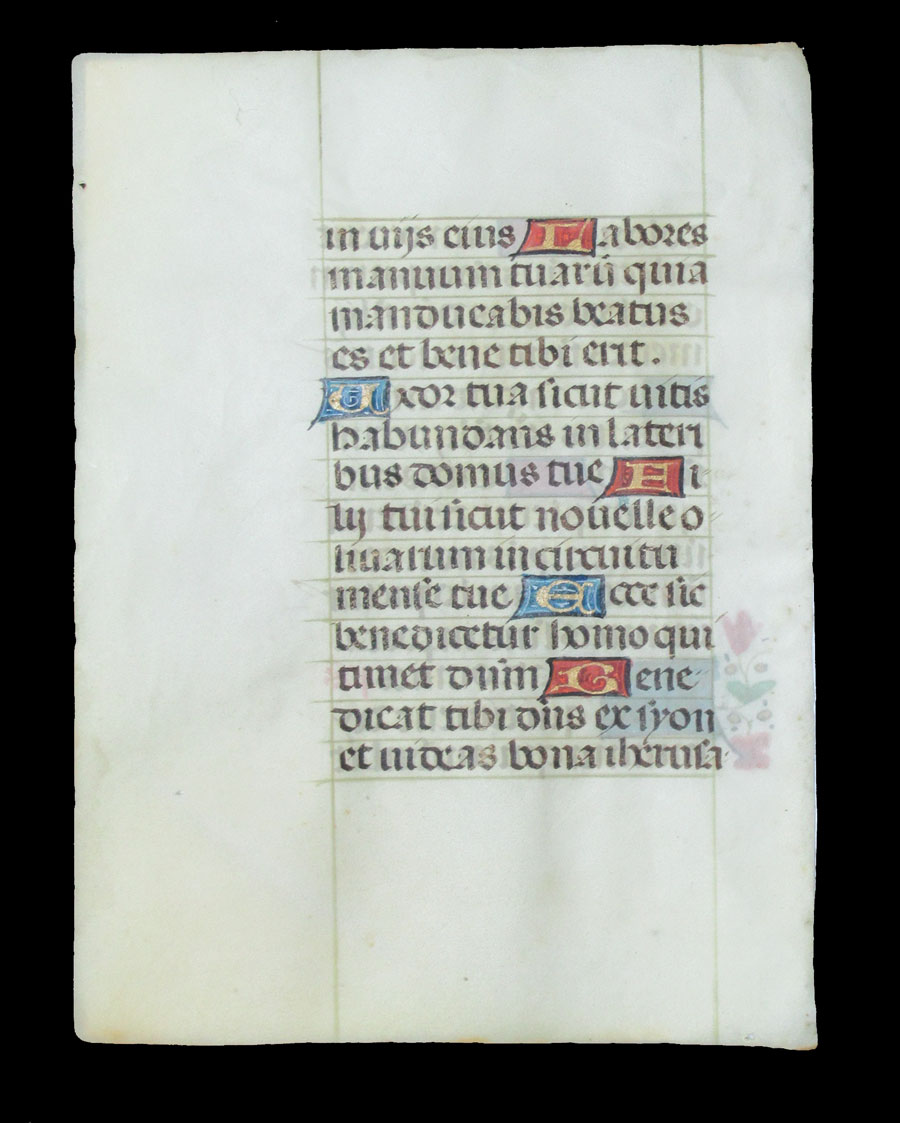 in uijs eius Labores
manuum tuarū quia
manducabis beatus
es et bene tibi erit.
Uxor tua sicut uitis
habundans in lateri
bus domus tue Fi
lij tui sicut nouelle o
liuarum in circuitu
mense tue Ecce sic
benedicetur homo qui
timet dūm Bene-
dicat tibi dn̄s ex syon
et uideas bona iherusa-